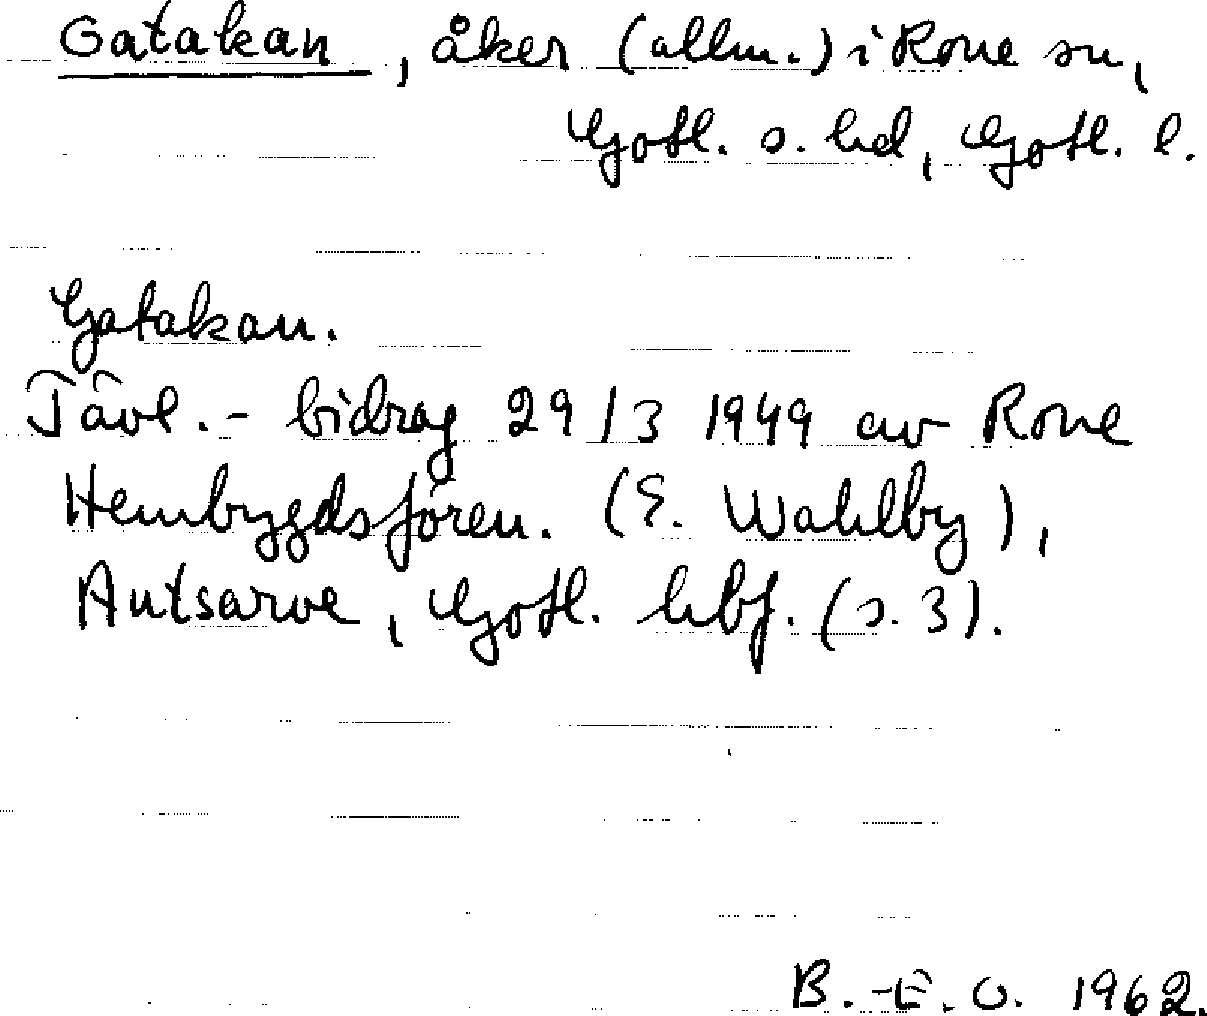 Gatakan, åker (allm.) i Rone sn,
Gotl. s. hd, Gotl. l.
Gatakan.
Tävl.- bidrag 29/3 1949 av Rone
Hembygdsfören. (E. Wahlby),
Autsarve, Gotl. hbf. (s. 3).
B.-E.O. 1962.